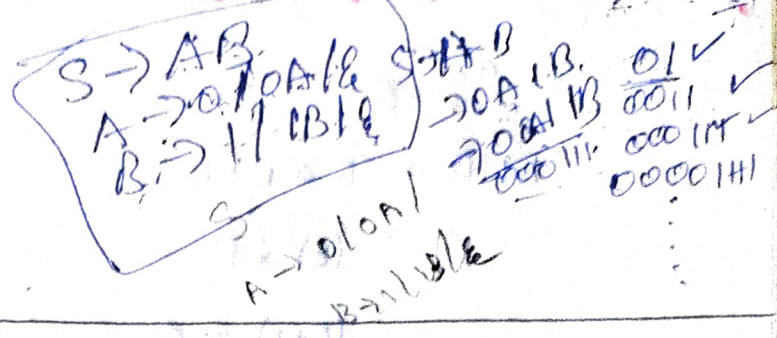 S → AB.
A → 0|0A|ε
B → 1|1B|ε
S → AB
→ 0A1B.
→ 00A1
000111
01 ✓
0011 ✓
000111 ✓
00001111
S
A → 0|0A|
B → 1|1B|ε